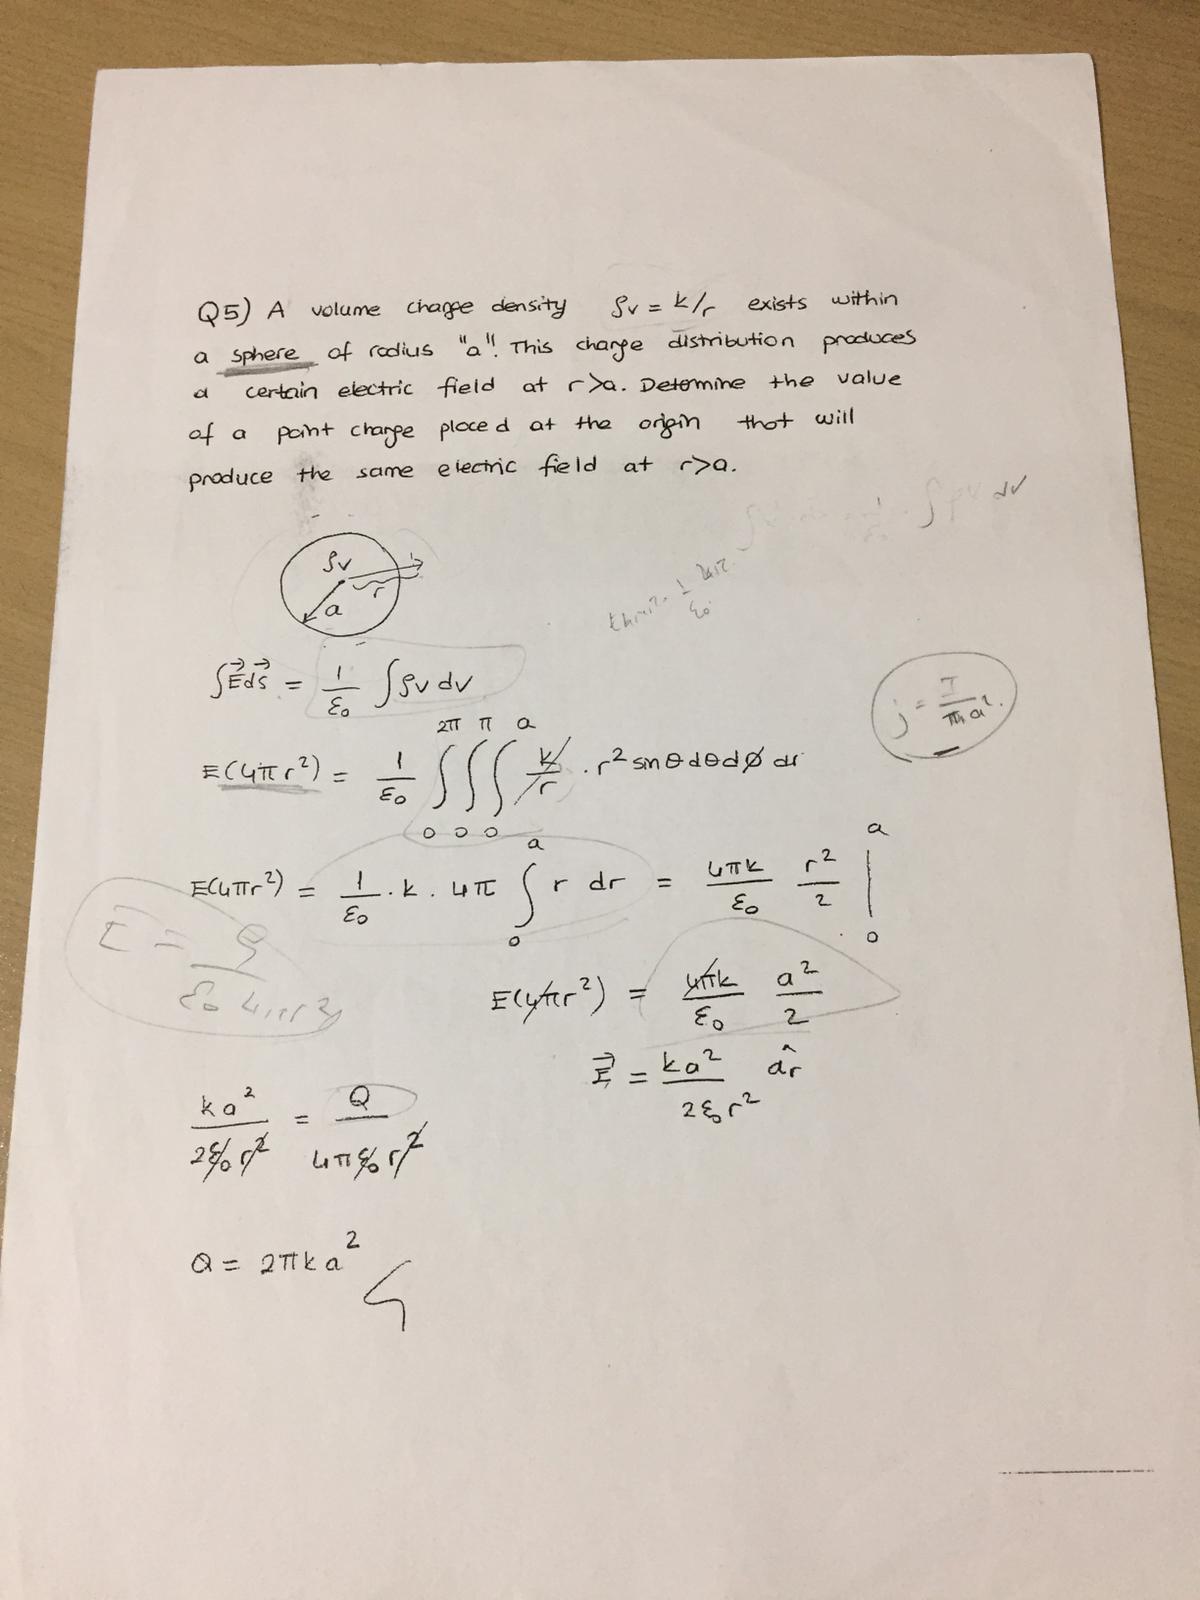 Q5) A volume charge density ρv = k/r exists within
a sphere of radius "a". This charge distribution produces
a certain electric field at r>a. Detemine the value
of a point charge placed at the origin that will
produce the same electric field at r>a.
∫ρv dv
ρv
r
a
1/ε0
∫E⃗ds⃗ = 1/ε0 ∫ρv dv
j = I/πa²
E(4πr²) = 1/ε0 ∫₀^2π ∫₀^π ∫₀^a k/r . r² sinθ dθ dø dr
E(4πr²) = 1/ε0 . k . 4π ∫₀^a r dr = 4πk/ε0 r²/2 |₀^a
E = ρ/ε0 4πr²
E(4πr²) = 4πk/ε0 a²/2
E⃗ = ka²/2ε0r² âr
ka²/2ε0r² = Q/4πε0r²
Q = 2πka²